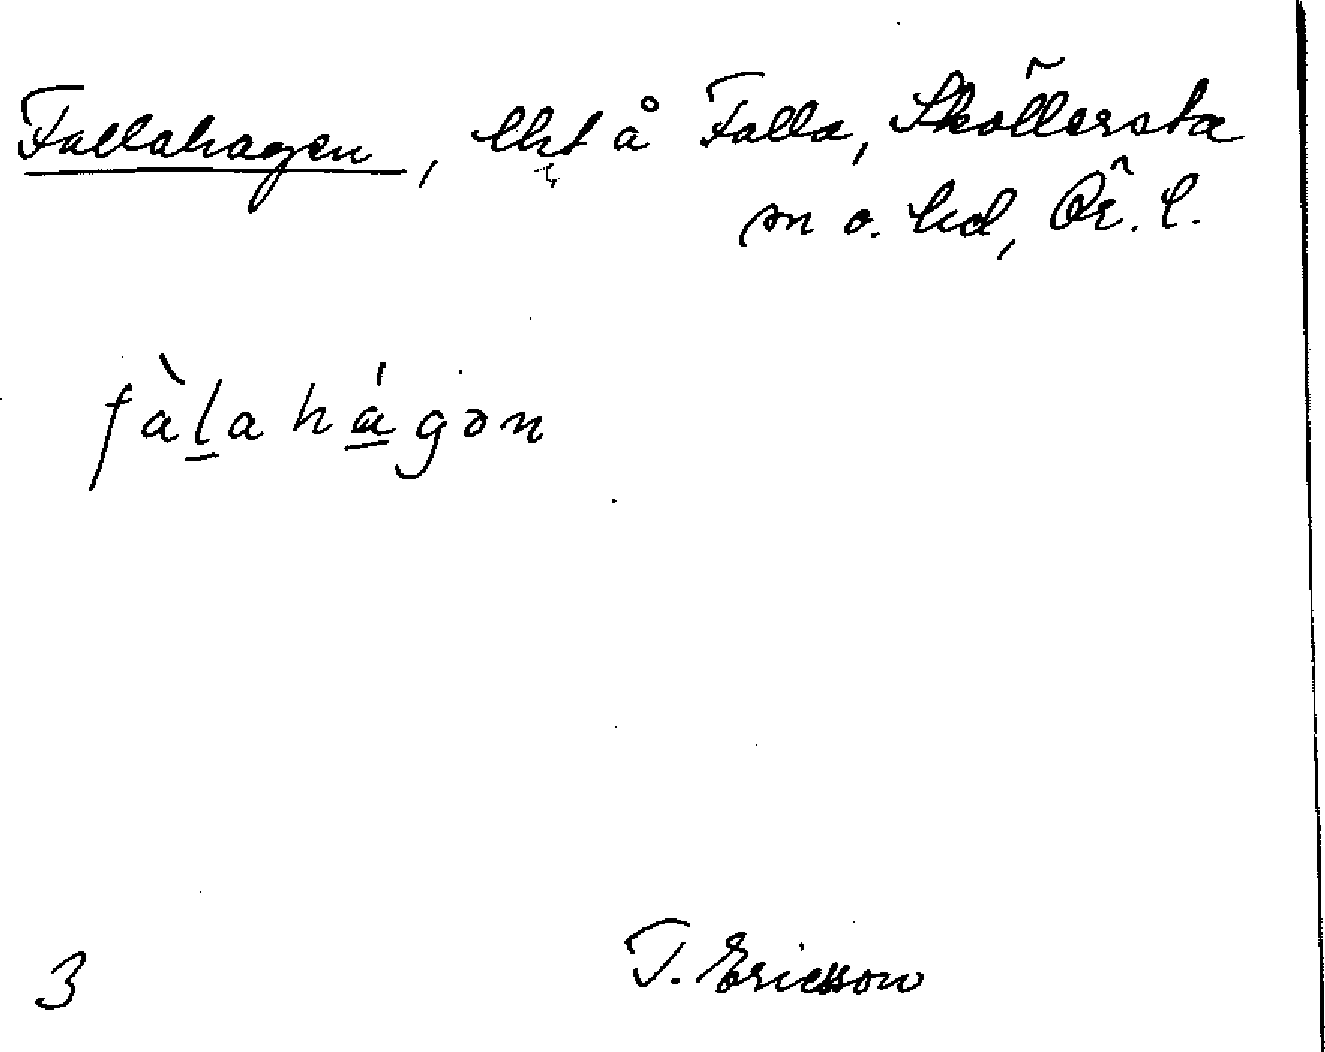 Fallahagen, lht å Falla, Sköllersta
sn o. hd, Ör. l.
fàlahágən
3
T. Ericsson